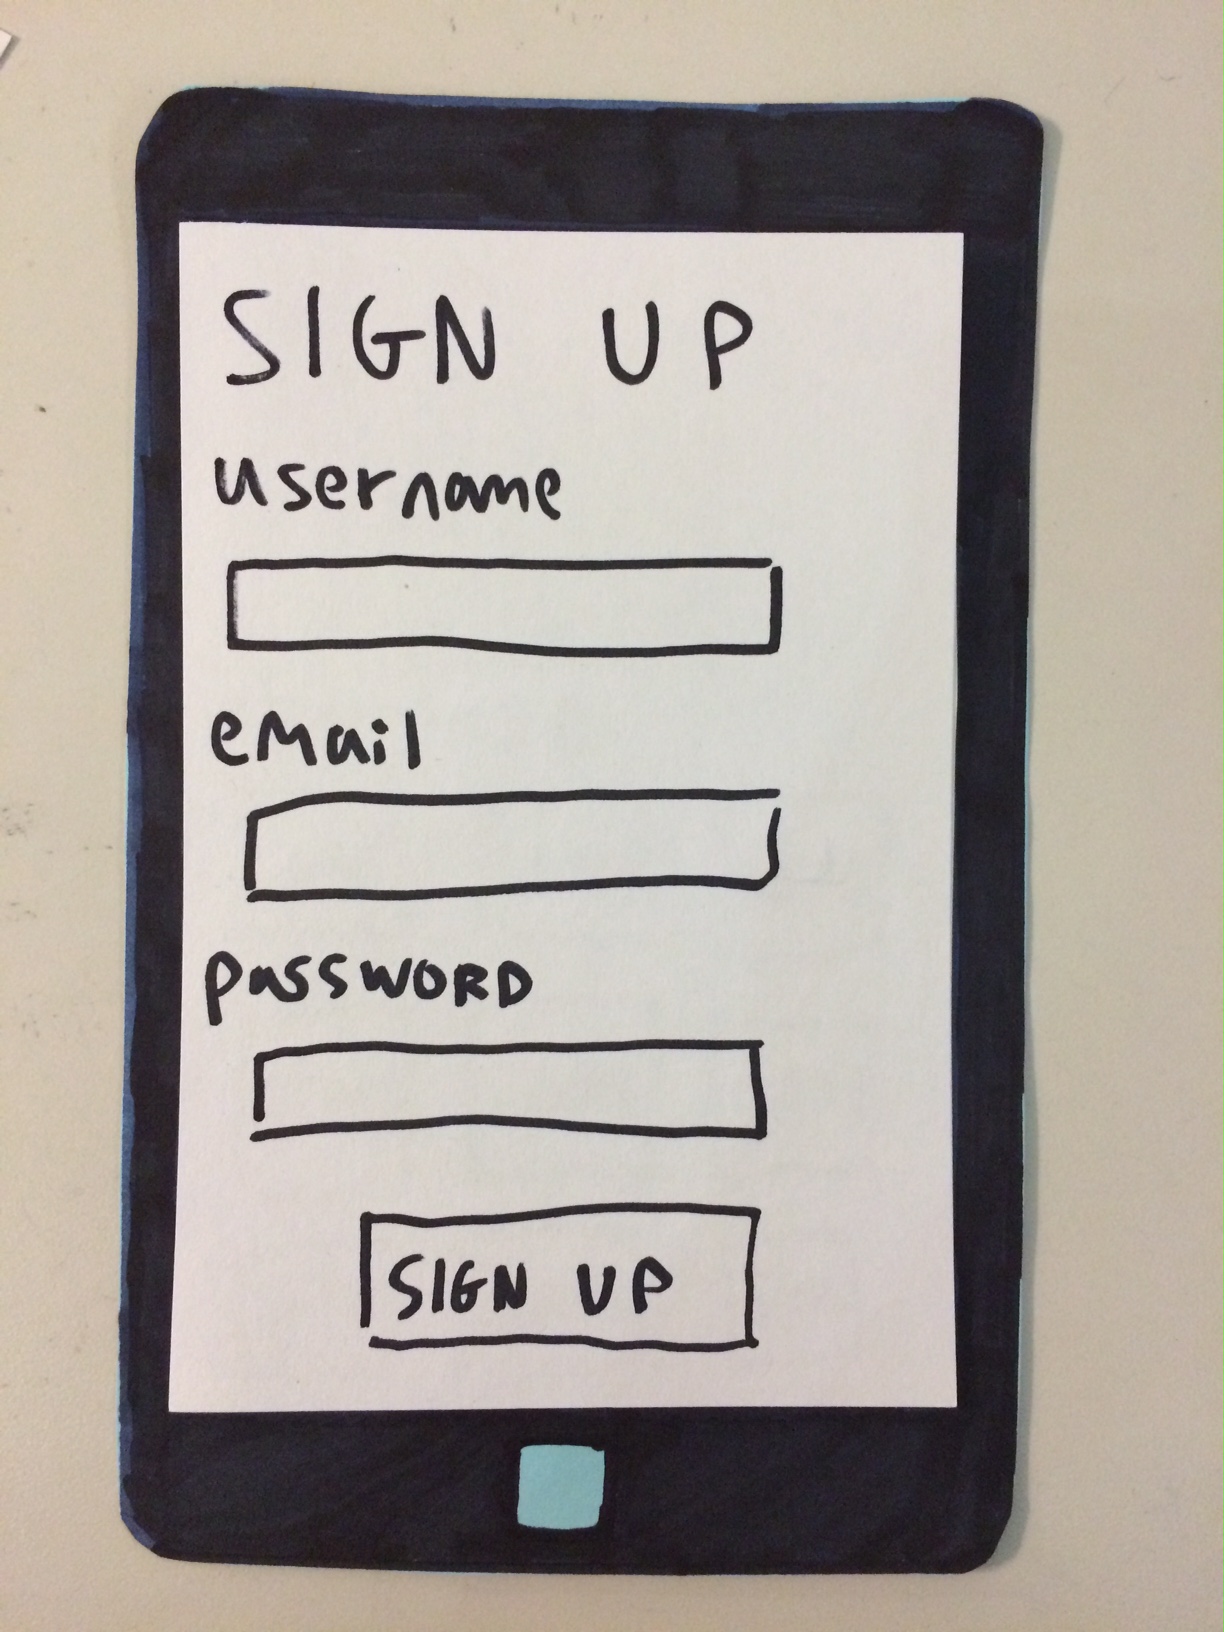 SIGN UP
username
email
password
SIGN UP